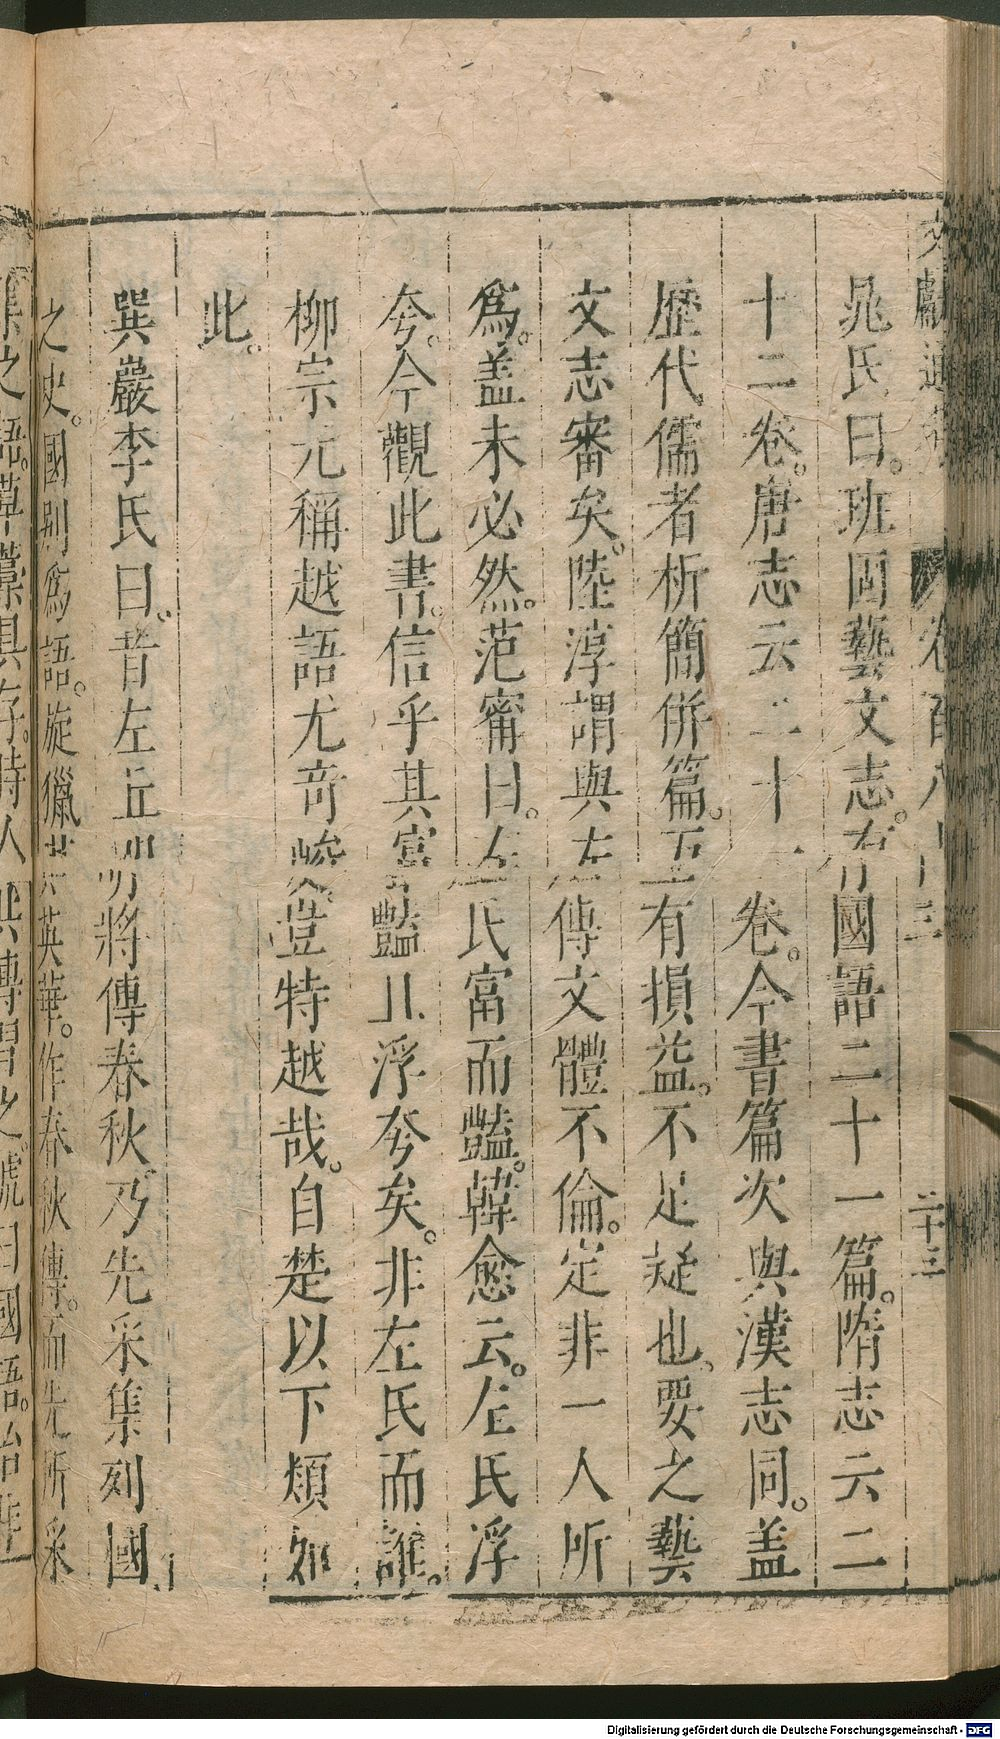 文獻通考 卷百八十三 二十三
晁氏曰。班固藝文志。有國語二十一篇。隋志云二
十二卷。唐志云二十一卷。今書篇次與漢志同。盖
歷代儒者析簡併篇。互有損益。不足疑也。要之藝
文志審矣。陸淳謂與左傳文體不倫。定非一人所
爲。盖未必然。范甯曰。左氏富而豔。韓愈云。左氏浮
夸。今觀此書。信乎其富豔且浮夸矣。非左氏而誰。
柳宗元稱越語尤奇峻。豈特越哉。自楚以下類如
此。
巽巖李氏曰。昔左丘明將傳春秋。乃先采集列國
之史。國别爲語。旋獵其英華。作春秋傳。而先所采
集之語。草藁具存。時人共傳習之。號曰國語。殆非
Digitalisierung gefördert durch die Deutsche Forschungsgemeinschaft - DFG